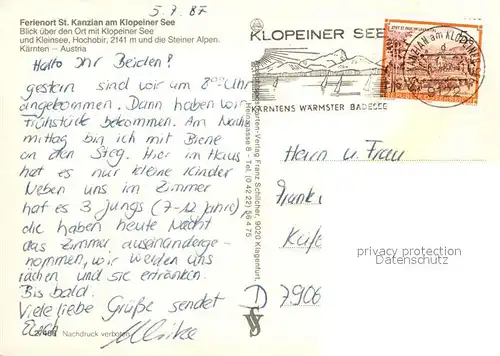 5.7.87
Ferienort St. Kanzian am Klopeiner See
Blick über den Ort mit Klopeiner See
und Kleinsee, Hochobir, 2141 m und die Steiner Alpen.
Kärnten – Austria
Hallo Ihr Beiden!
gestern sind wir um 8°° Uhr
angekommen. Dann haben wir
Frühstück bekommen. Am Nach
mittag bin ich mit Biene
an den Steg. Hier im Haus
hat es nur kleine Kinder
Neben uns im Zimmer
hat es 3 Jungs (7-12 Jahre),
die haben heute Nacht
das Zimmer auseinanderge-
nommen, wir werden uns
rächen und sie ertränken.
Bis bald.
Viele liebe Grüße sendet
Euch Ulrike
Nachdruck verboten
KLOPEINER SEE
KÄRNTENS WÄRMSTER BADESEE
ST. KANZIAN am KLOPEINER
9122
-Verlag Franz Schilcher, 9020 Klagenfurt,
gasse 8 - Tel. (0 42 22) 56 4 75
Herrn u. Frau
D 7906
privacy protection
privacy protection